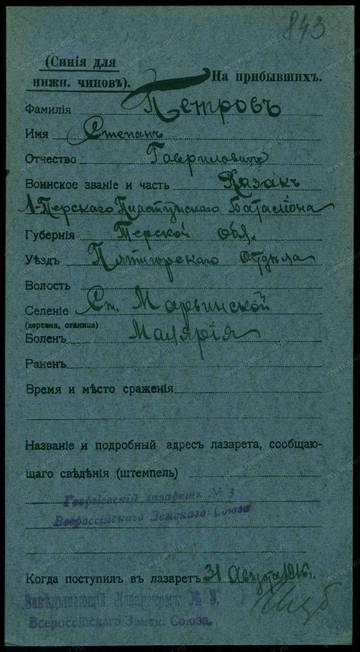 843
(Синія для
нижн. чиновъ).
На прибывшихъ.
Фамилія Петровъ
Имя Степанъ
Отчество Гавриловичъ
Воинское званіе и часть Казакъ
1-Терского Пластунского Баталіона
Губернія Терской Обл.
Уѣздъ Пятигорского Отдѣла
Волость
Селеніе Ст. Марьинской
(деревня, станица)
Боленъ Малярія
Раненъ
Время и мѣсто сраженія
Названіе и подробный адресъ лазарета, сообщаю-
щаго свѣдѣнія (штемпель)
лазаретъ № 3
Всероссійскаго Земскаго Союза
Когда поступилъ въ лазаретъ 31 Августа 1916 г.
Завѣдывающій Лазаретомъ №
Всероссійскаго Земск. Союза.